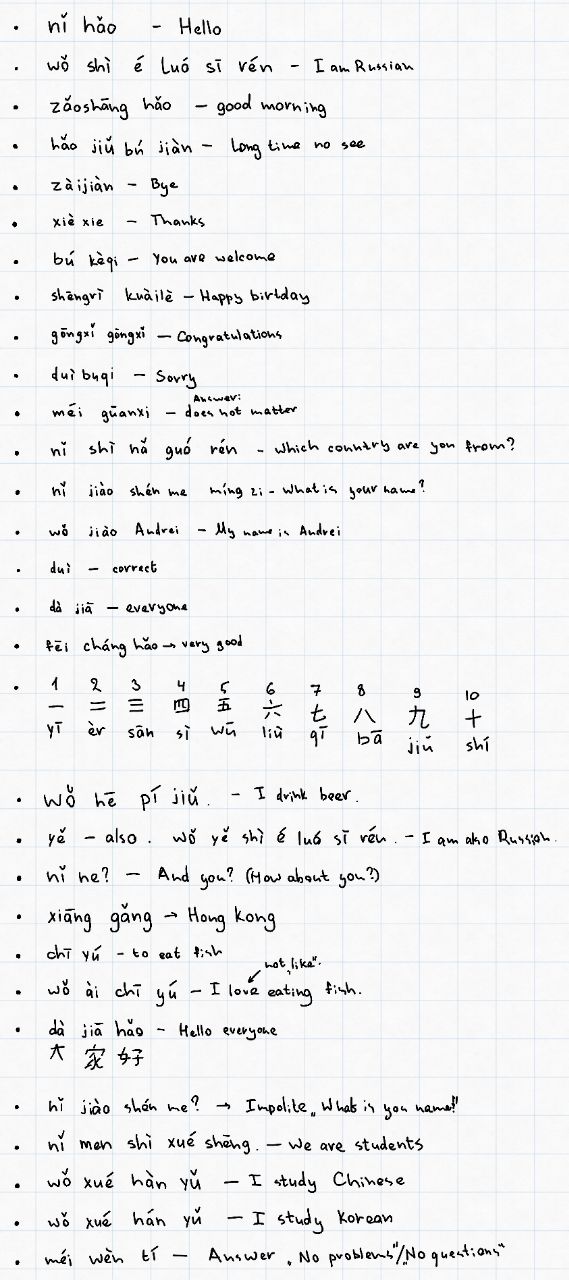 • nǐ hǎo - Hello
• wǒ shì é luó sī rén - I am Russian
• zǎoshāng hǎo - good morning
• hǎo jiǔ bú jiàn - Long time no see
• zàijiàn - Bye
• xiè xie - Thanks
• bú kèqi - You are welcome
• shēngrì kuàilè - Happy birtday
• gōngxǐ gōngxǐ - Congratulations
• duì buqi - Sorry
Answer:
• méi gūanxi - does not matter
• nǐ shì nǎ guó rén - Which country are you from?
• nǐ jiào shén me míng zi - What is your name?
• wǒ jiào Andrei - My name is Andrei
• duì - correct
• dà jiā - everyone
• fēi cháng hǎo → very good
• 1 2 3 4 5 6 7 8 9 10
一 二 三 四 五 六 七 八 九 十
yī èr sān sì wǔ liù qī bā jiǔ shí
• wǒ hē pí jiǔ. - I drink beer.
• yě - also. wǒ yě shì é luó sī rén. - I am also Russian.
• nǐ ne? - And you? (How about you?)
• xiāng gǎng → Hong Kong
• chī yú - to eat fish
not „like".
• wǒ ài chī yú - I love eating fish.
• dà jiā hǎo - Hello everyone
大 家 好
• nǐ jiào shén me? → Impolite „What is you name?"
• nǐ men shì xué shēng. - We are students
• wǒ xué hàn yǔ - I study Chinese
• wǒ xué hán yǔ - I study Korean
• méi wèn tí - Answer „No problems"/„No questions"